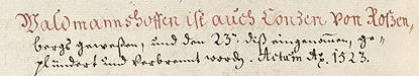 Waldmannshoffen ist auch Conzen von Roßen,
bergs geweßen, und den 23ᵗ. diß eingenomen, ge„
plündert und verbrennt wordn. Actum Aō. 1523.